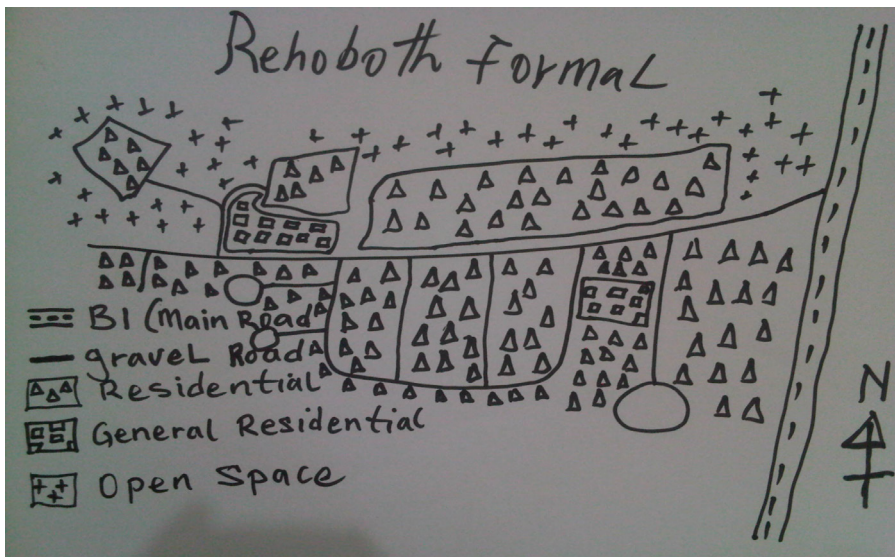 Rehoboth Formal
B1 (Main Road
gravel Road
Residential
General Residential
Open Space
N